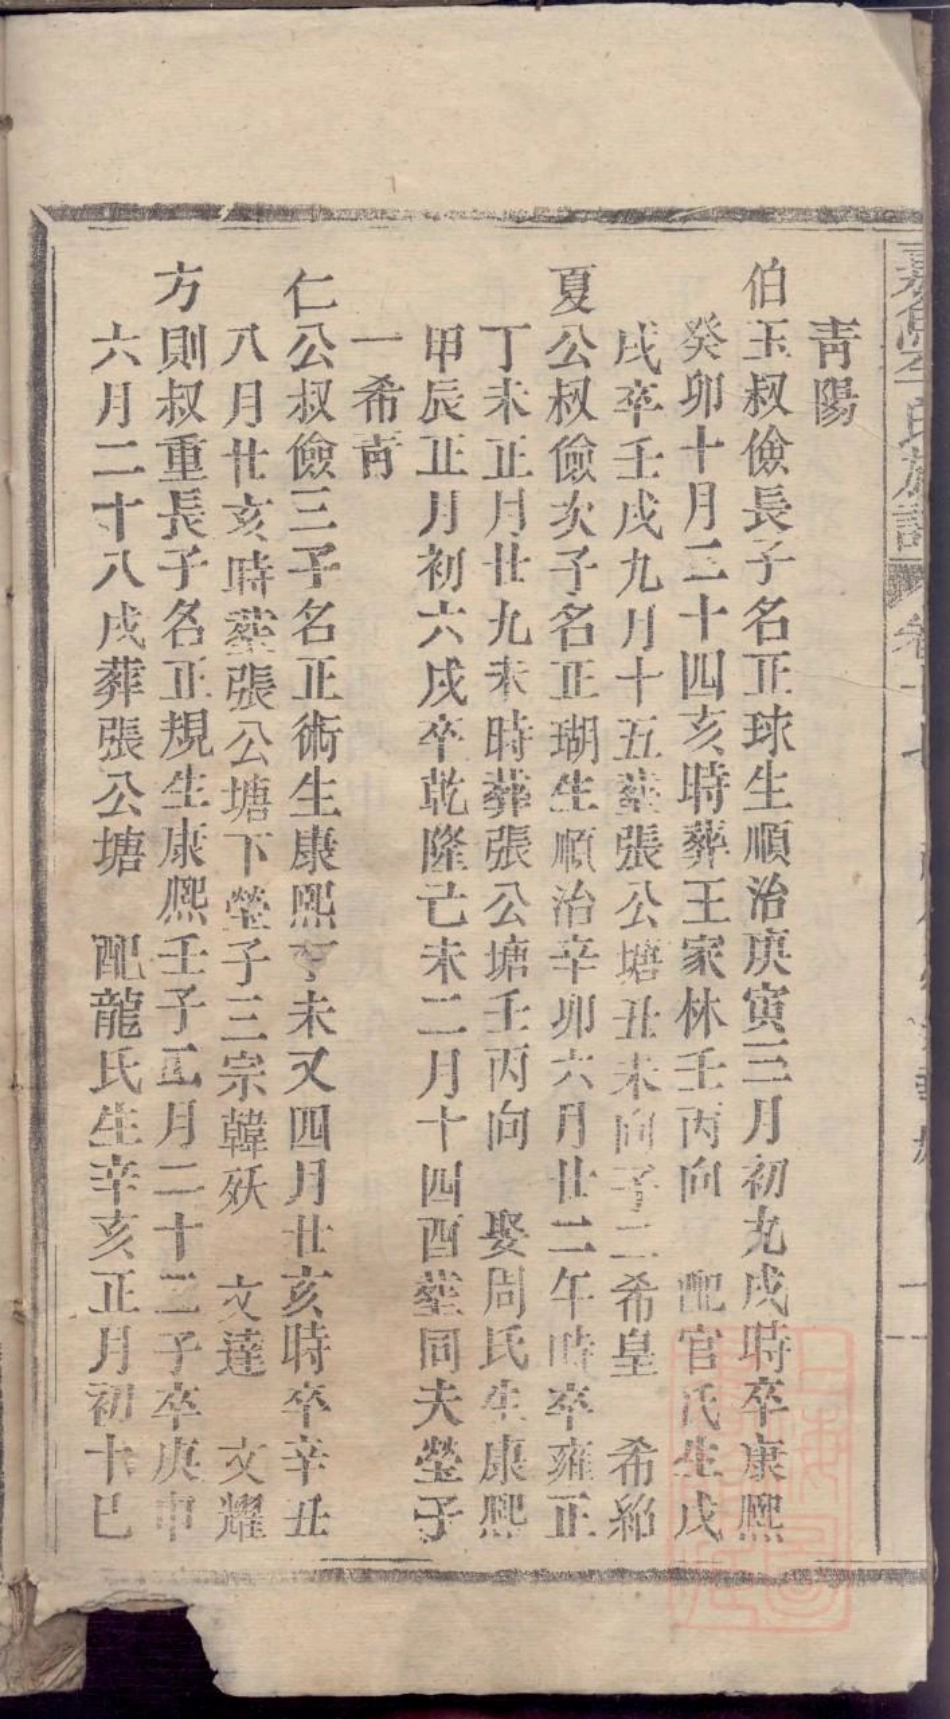 氏族譜
青陽
伯玉叔儉長子名正球生順治庚寅三月初九戌時卒康熙
癸卯十月二十四亥時葬王家林壬丙向 配官氏生戊
戌卒壬戌九月十五塟張公塘丑未向子二希皇 希紹
夏公叔儉次子名正瑚生順治辛卯六月廿二午時卒雍正
丁未正月廿九未時葬張公塘壬丙向 娶周氏生康熙
甲辰正月初六戌卒乾隆己未二月十四酉塟同夫塋子
一希靑
仁公叔儉三子名正術生康熙丁未又四月廿亥時卒辛丑
八月廿亥時塟張公塘下塋子三宗韓妖 文達 文耀
方則叔重長子名正規生康熙壬子正月二十二子卒庚申
六月二十八戌葬張公塘 配龍氏生辛亥正月初十巳